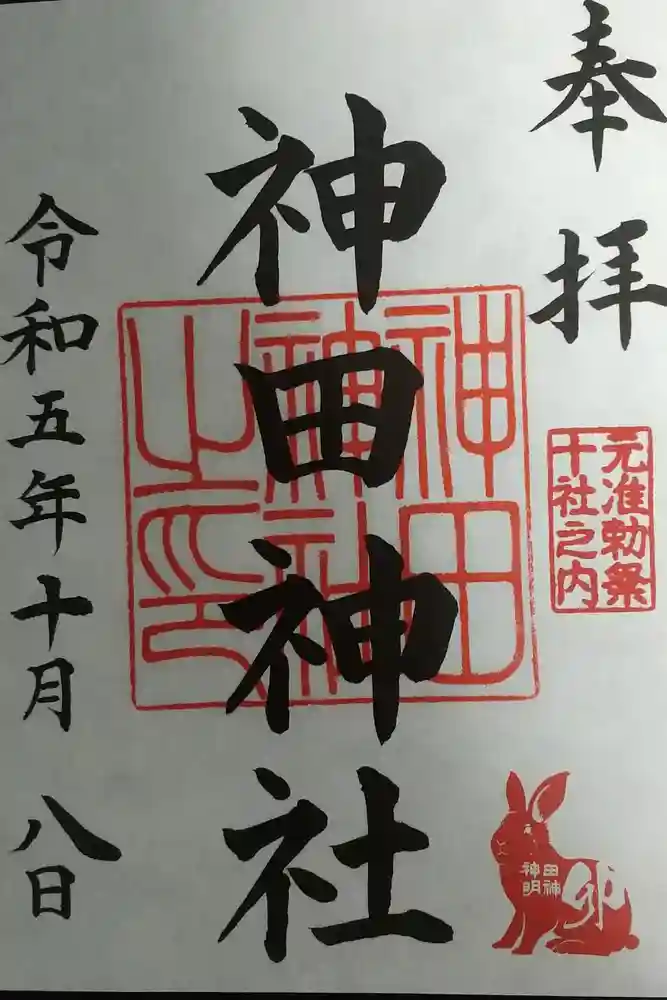 奉拝
元准勅祭
十社之内
田神
神明
卯
神田神社
神田
神社
之印
令和五年十月八日